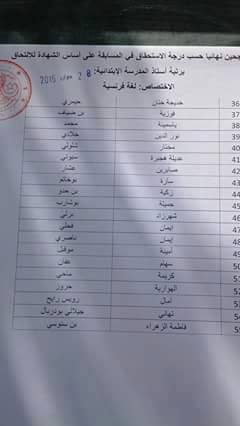 جحين نهائيا حسب درجة الاستحقاق في المسابقة على أساس الشهادة للالتحاق
برتبة أستاذ المدرسة الابتدائية: 28 2015
الاختصاص: لغة فرنسية
36 خديجة حنان حيمري
37 فوزية بن ضياف
38 ياسمينة محمد
39 نور الدين خلادي
40 مختار شلولي
41 عدينة هجيرة سبولي
42 صابرين عشار
43 سارة بوخاتم
44 زكية بن حدو
45 حسينة بوشارب
46 شهرزاد برلي
47 إيمان فحلي
48 إيمان ناصري
49 أمينة موفق
50 سهام عفان
5 كريمة صاحي
5 الهوارية حرور
5 أمال رويس رابح
5 تهاني جيلالي بودربال
5 فاطمة الزهراء بن سنوسي